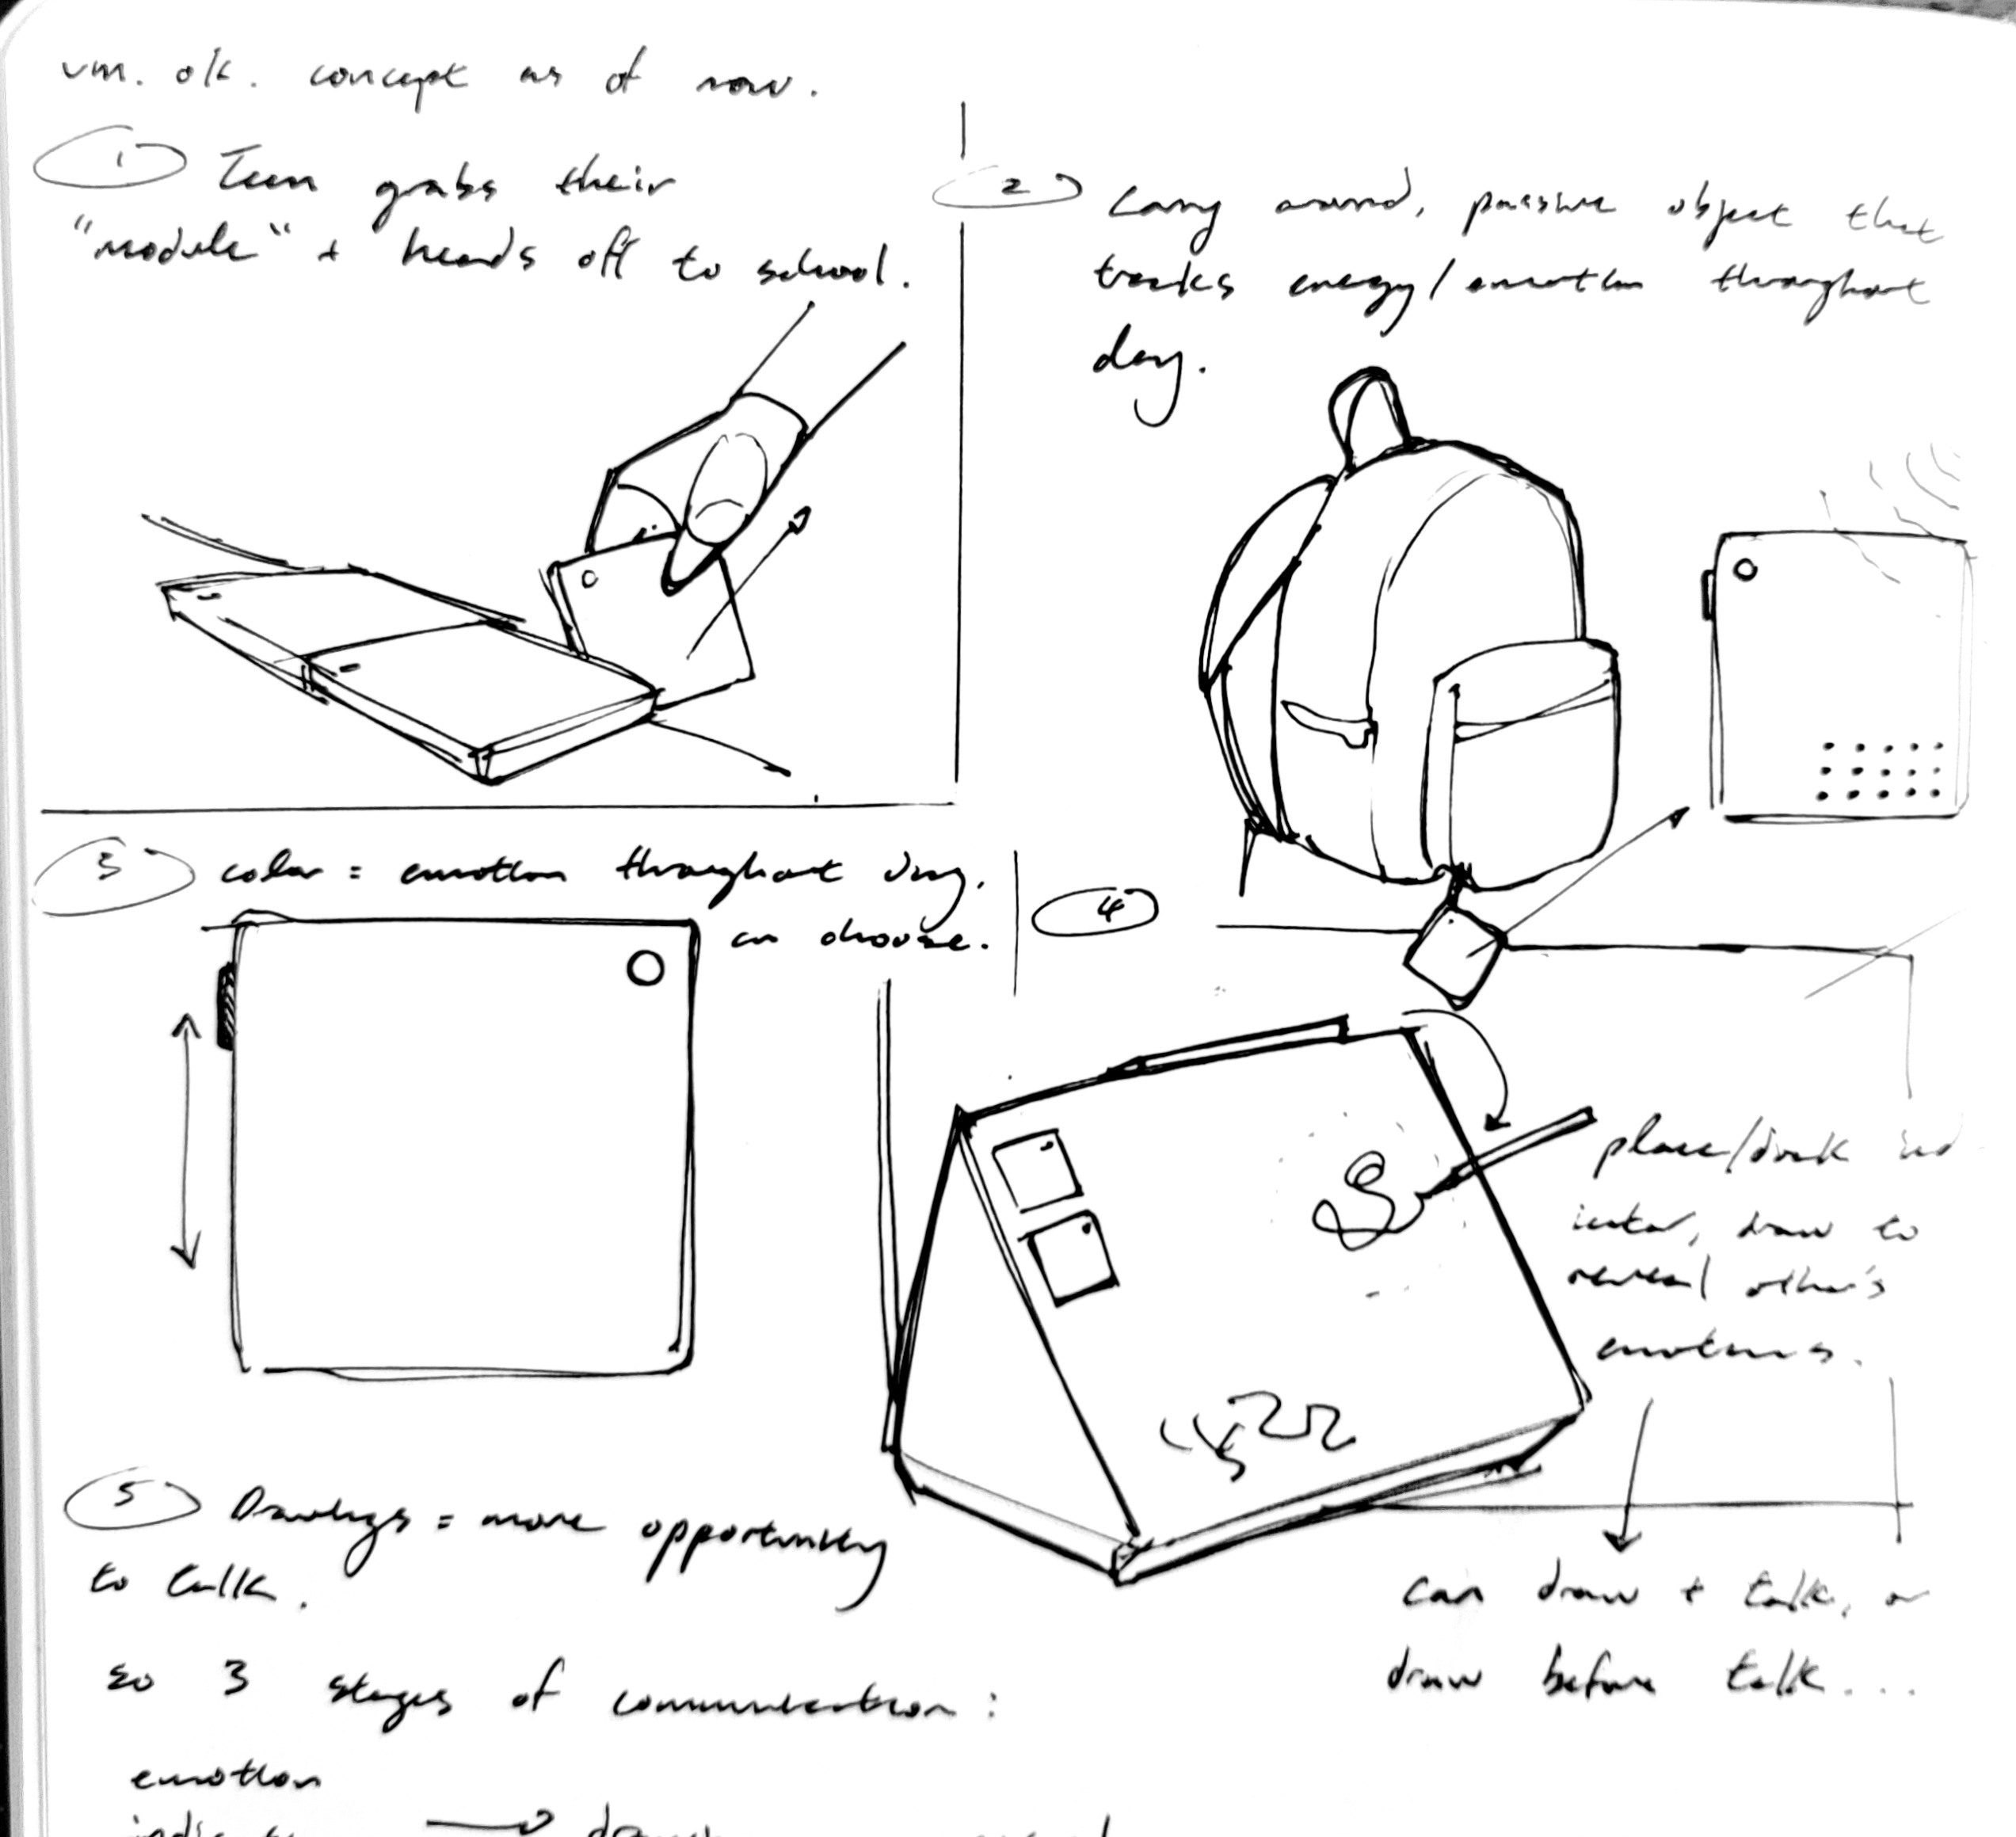 um. ok. concept as of now.
1 Teen grabs their
"module" + heads off to school.
2 carry around, passive object that
tracks energy/emotion throughout
day.
3 color = emotion throughout day.
can choose.
4
place/dock ind
icator, draw to
reveal other's
emotions.
can draw + talk, or
draw before talk...
5 Drawings = more opportunity
to talk.
so 3 stages of communication:
emotion